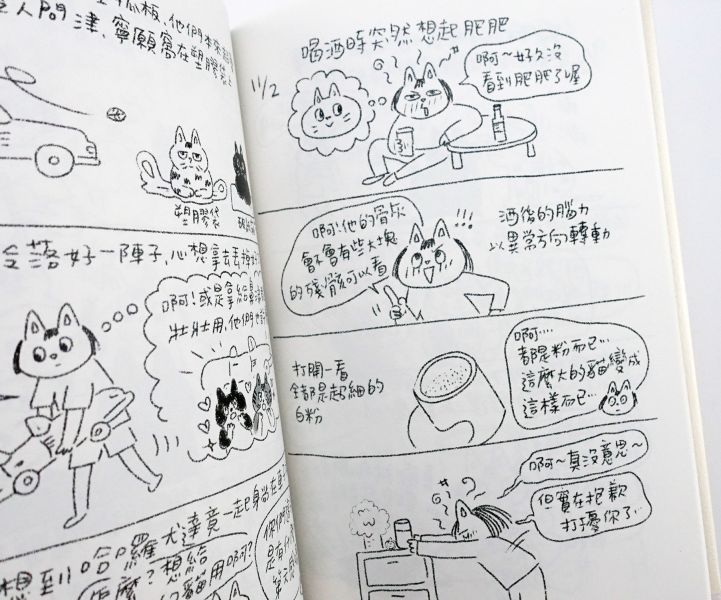 抓板、他們本來
人問津、寧願窩在塑膠
塑膠袋
落好一陣子,心想拿去丟掉
啊!或是拿給
壯壯用,他們也
想到哈囉犬達竟一起身坐在
怎麼?想給
貓用啊?
喝酒時突然想起肥肥
11/2
啊~好久沒
看到肥肥了喔
啊!他的骨灰
會不會有些大塊
的殘骸可以看
酒後的腦力
以異常方向轉動
打開一看
全都是超細的
白粉
啊…
都是粉而已…
這麼大的貓變成
這樣而已…
啊~真沒意思~
但實在抱歉
打擾你了…